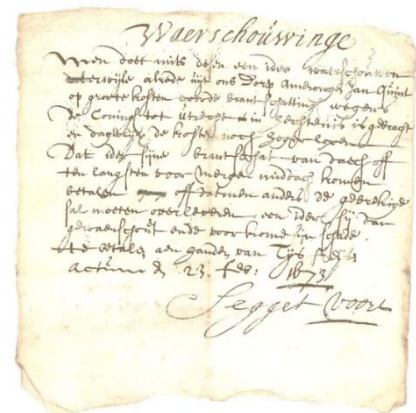 Waerschouwinge
Men doet mits desen een ider waerschouwen
alrede uijt ons Dorp Amerongen Jan Quint
op groote kosten ende brantschatting wegens
De Coningh tot Utrecht in hechtenis is gebracht
en dagelijx de kosten noch hoger loopen
Dat ider sijne brantschat van daech off
ten langsten voor mergen middach komen
betalen off datmen anders de gebrekige
sal moeten overleveren een ider sij dan
gewaerschout ende voorkome sijn schade.
te betalen aen handen van Tijs
Actum d 23 feb: 1673
Segget Voort